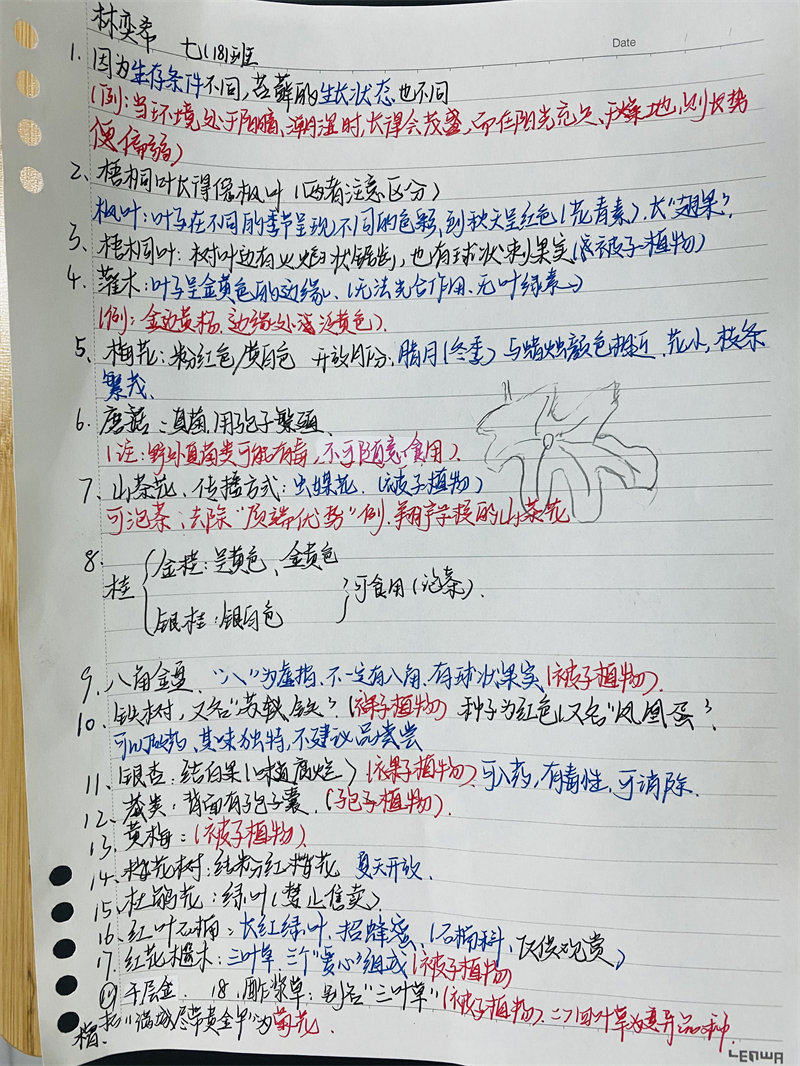 林奕希 七(18)班
Date
1. 因为生存条件不同,苔藓的生长状态也不同
(例:当环境处于阴暗、潮湿时,长得会茂盛,而在阳光充足、干燥地,则长势
便偏弱)
2、梧桐叶长得像枫叶(两者注意区分)
枫叶:叶子在不同的季节呈现不同的色彩,到秋天呈红色(花青素).长"翅果".
3、梧桐叶:树叶边有火焰状锯齿,也有球状刺果实(被子植物)
4、灌木:叶子呈金黄色的边缘.(无法光合作用.无叶绿素)
(例:金边黄杨、边缘处淡黄色).
5、梅花:粉红色/黄白色 开放月份:腊月(冬季)与蜡烛颜色相近.花小,枝条
繁茂.
6.蘑菇:真菌,用孢子繁殖.
(注:野外真菌类可能有毒,不可随意食用).
7、山茶花、传播方式:虫媒花.(被子植物)
可泡茶、去除"顶端优势"例.翔宇学校的山茶花
8.桂
金桂:呈黄色、金黄色
银桂:银白色
可食用(泡茶).
9、八角金盘."八"为虚指、不一定有八角.有球状果实(被子植物).
10、铁树,又名"苏铁".(裸子植物) 种子为红色,又名"凤凰蛋".
其味独特,不建议品尝
11、银杏:结白果(腐烂)(裸子植物).可入药,有毒性,可消除.
12、蕨类:背面有孢子囊.(孢子植物).
13、黄梅:(被子植物).
14、梅花树:结粉红梅花 夏天开放.
15、杜鹃花:绿叶(禁止售卖)
16、红叶石楠:长红绿叶.招蜂蜜.(石楠科.仅供观赏)
17.红花檵木:三叶草 三个"爱心"组成(被子植物)
千层金. 18.酢浆草:别名"三叶草"(被子植物).四叶草为变异品种.
"满城尽带黄金甲"为菊花.
LENWA